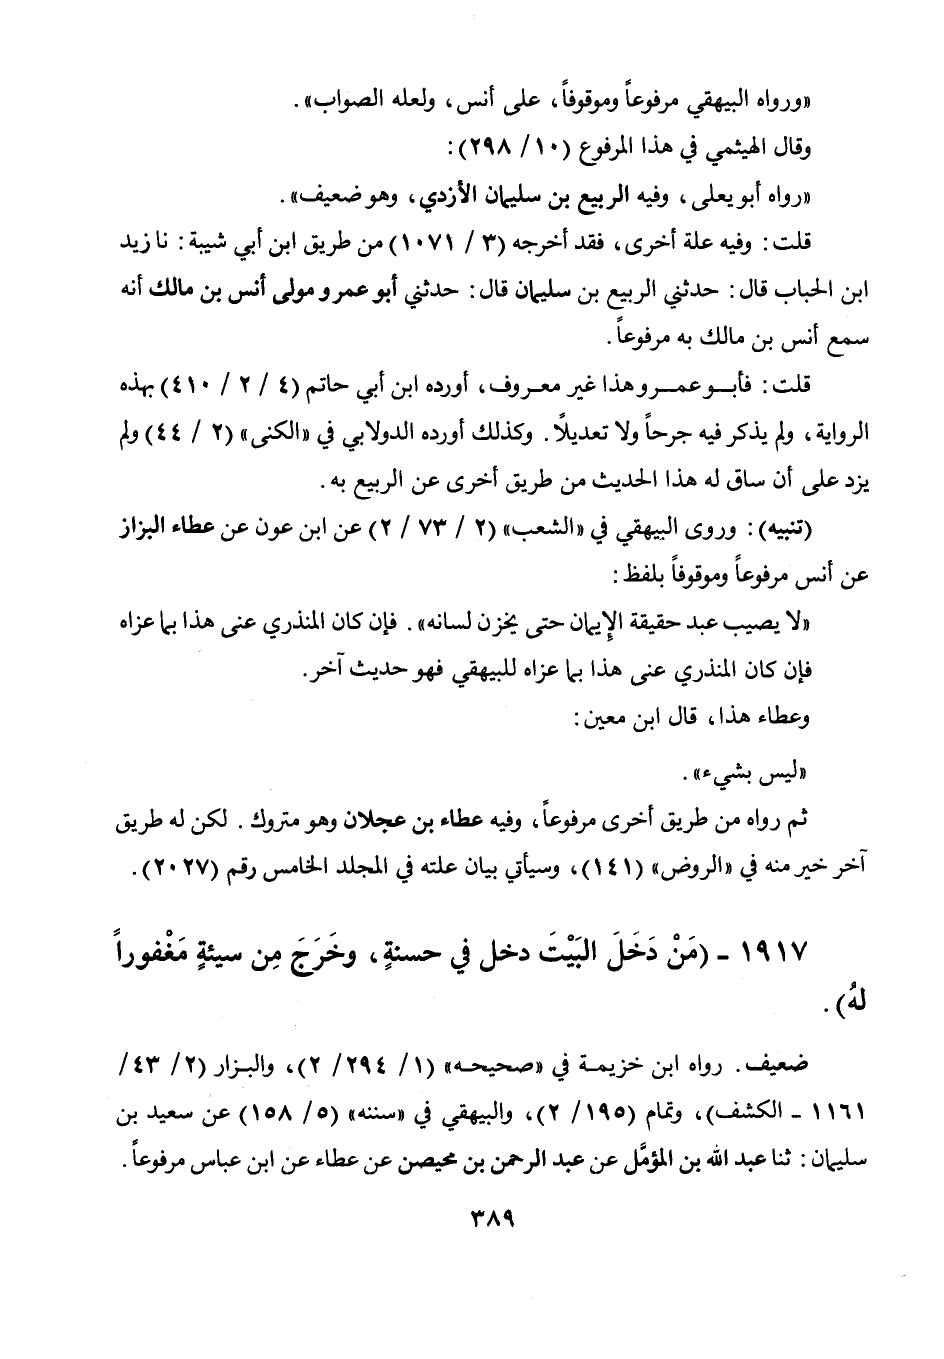 «ورواه البيهقي مرفوعاً وموقوفاً، على أنس، ولعله الصواب».
وقال الهيثمي في هذا المرفوع (١٠/ ٢٩٨):
«رواه أبو يعلى، وفيه الربيع بن سليمان الأزدي، وهو ضعيف».
قلت: وفيه علة أخرى، فقد أخرجه (٣ / ١٠٧١) من طريق ابن أبي شيبة: نا زيد
ابن الحباب قال: حدثني الربيع بن سليمان قال: حدثني أبو عمرو مولى أنس بن مالك أنه
سمع أنس بن مالك به مرفوعاً.
قلت: فأبو عمرو هذا غير معروف، أورده ابن أبي حاتم (٤ / ٢ / ٤١٠) بهذه
الرواية، ولم يذكر فيه جرحاً ولا تعديلاً. وكذلك أورده الدولابي في «الكنى» (٢ / ٤٤) ولم
يزد على أن ساق له هذا الحديث من طريق أخرى عن الربيع به.
(تنبيه): وروى البيهقي في «الشعب» (٢ / ٧٣ / ٢) عن ابن عون عن عطاء البزاز
عن أنس مرفوعاً وموقوفاً بلفظ:
«لا يصيب عبد حقيقة الإيمان حتى يخزن لسانه». فإن كان المنذري عنى هذا بما عزاه
فإن كان المنذري عنى هذا بما عزاه للبيهقي فهو حديث آخر.
وعطاء هذا، قال ابن معين:
«ليس بشيء».
ثم رواه من طريق أخرى مرفوعاً، وفيه عطاء بن عجلان وهو متروك. لكن له طريق
آخر خير منه في «الروض» (١٤١)، وسيأتي بيان علته في المجلد الخامس رقم (٢٠٢٧).
١٩١٧ - (مَنْ دَخَلَ البَيْتَ دخل في حسنةٍ، وخَرَجَ مِن سيئةٍ مَغْفوراً
لهُ).
ضعيف. رواه ابن خزيمة في «صحيحه» (١/ ٢٩٤/ ٢)، والبزار (٢/ ٤٣/
١١٦١ - الكشف)، وتمام (١٩٥/ ٢)، والبيهقي في «سننه» (٥/ ١٥٨) عن سعيد بن
سليمان: ثنا عبد الله بن المؤمَّل عن عبد الرحمن بن محيصن عن عطاء عن ابن عباس مرفوعاً.
٣٨٩